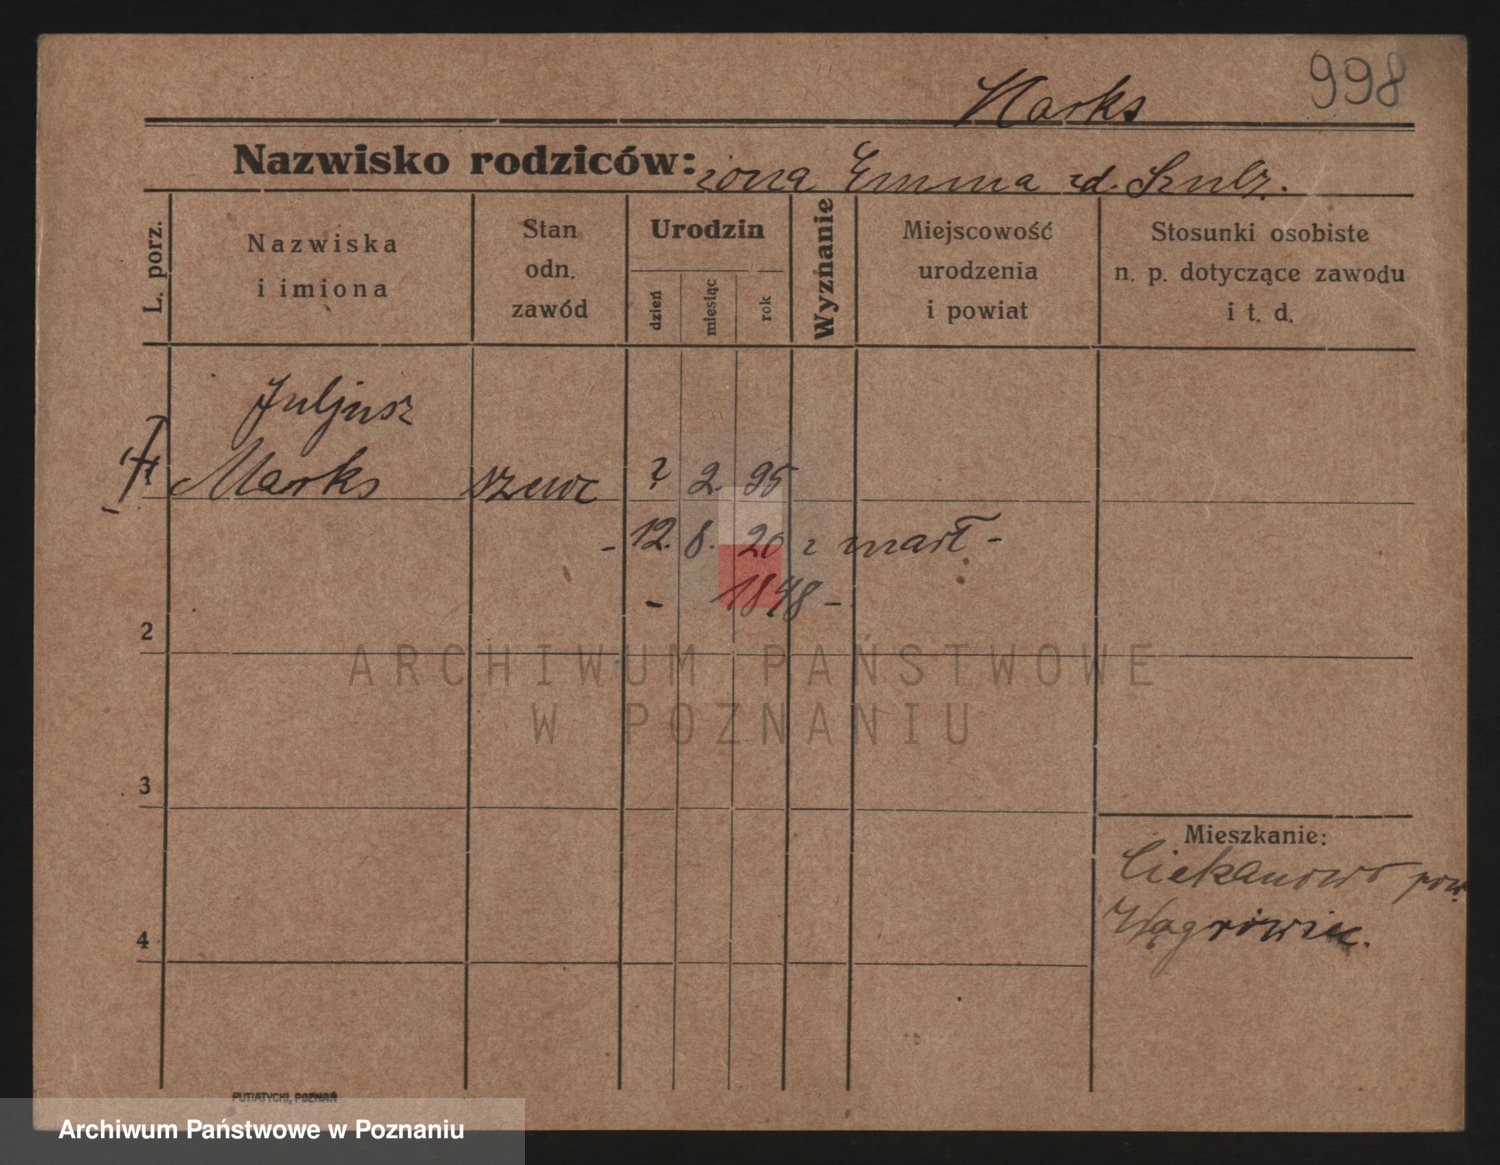 998
Marks
Nazwisko rodziców: żona Emma zd. Szulz.
L. porz.
Nazwiska
i imiona
Stan
odn.
zawód
Urodzin
dzień
miesiąc
rok
Wyznanie
Miejscowość
urodzenia
i powiat
Stosunki osobiste
n. p. dotyczące zawodu
i t. d.
Juljusz
Marks szewc ? 2. 95
- 12. 8. 20 zmarł -
- 1848 -
2
3
4
Mieszkanie:
Ciekanowo pow.
Wągrowiec.
ARCHIWUM PAŃSTWOWE
W POZNANIU
PUTIATYCKI, POZNAŃ
Archiwum Państwowe w Poznaniu